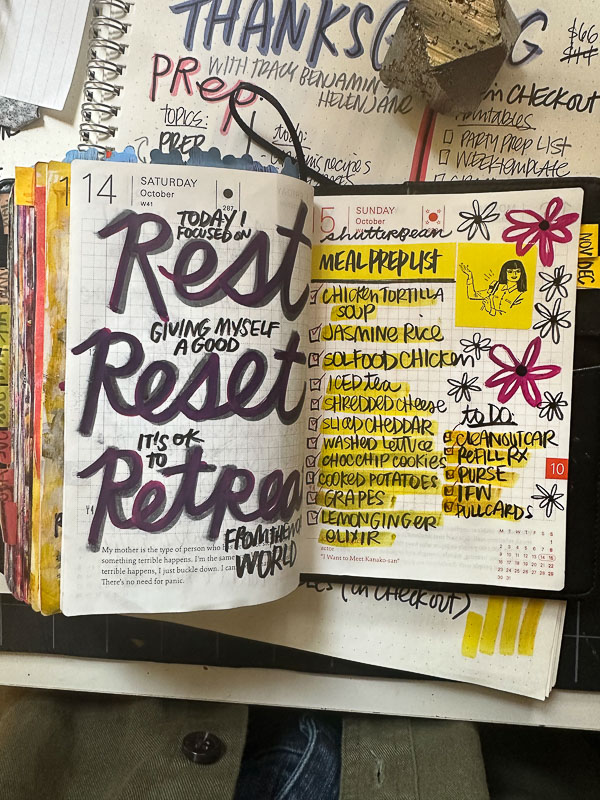 THANKSGIVING
PREP
WITH TRACY BENJAMIN &
HELEN JANE
TOPICS:
PREP
todo:
recipes
$66
$44
CHECKOUT
PARTY PREP LIST
WEEK TEMPLATE
14
SATURDAY
October
W41
287
TODAY I
FOCUSED ON
Rest
GIVING MYSELF
A GOOD
Reset
IT'S OK
TO
Retrea
FROM THE
WORLD
My mother is the type of person who
something terrible happens. I'm the same
terrible happens, I just buckle down. I can
There's no need for panic.
5
SUNDAY
October
shutterbean
MEAL PREP LIST
CHICKEN TORTILLA
SOUP
JASMINE RICE
SALFOOD CHICKEN
ICED tea
SHREDDED CHEESE
SLICED CHEDDAR
WASHED LETTUCE
CHOC CHIP COOKIES
COOKED POTATOES
GRAPES
LEMON GINGER
ELIXIR
to DO:
CLEAN OUT CAR
REFILL RX
PURSE
IFW
PULL CARDS
NOV
DEC
10
actor
"I Want to Meet Kanako-san"
M T W T F S S
1
2 3 4 5 6 7 8
9 10 11 12 13 14 15
16 17 18 19 20 21 22
23 24 25 26 27 28 29
30 31
(on CHECKOUT)